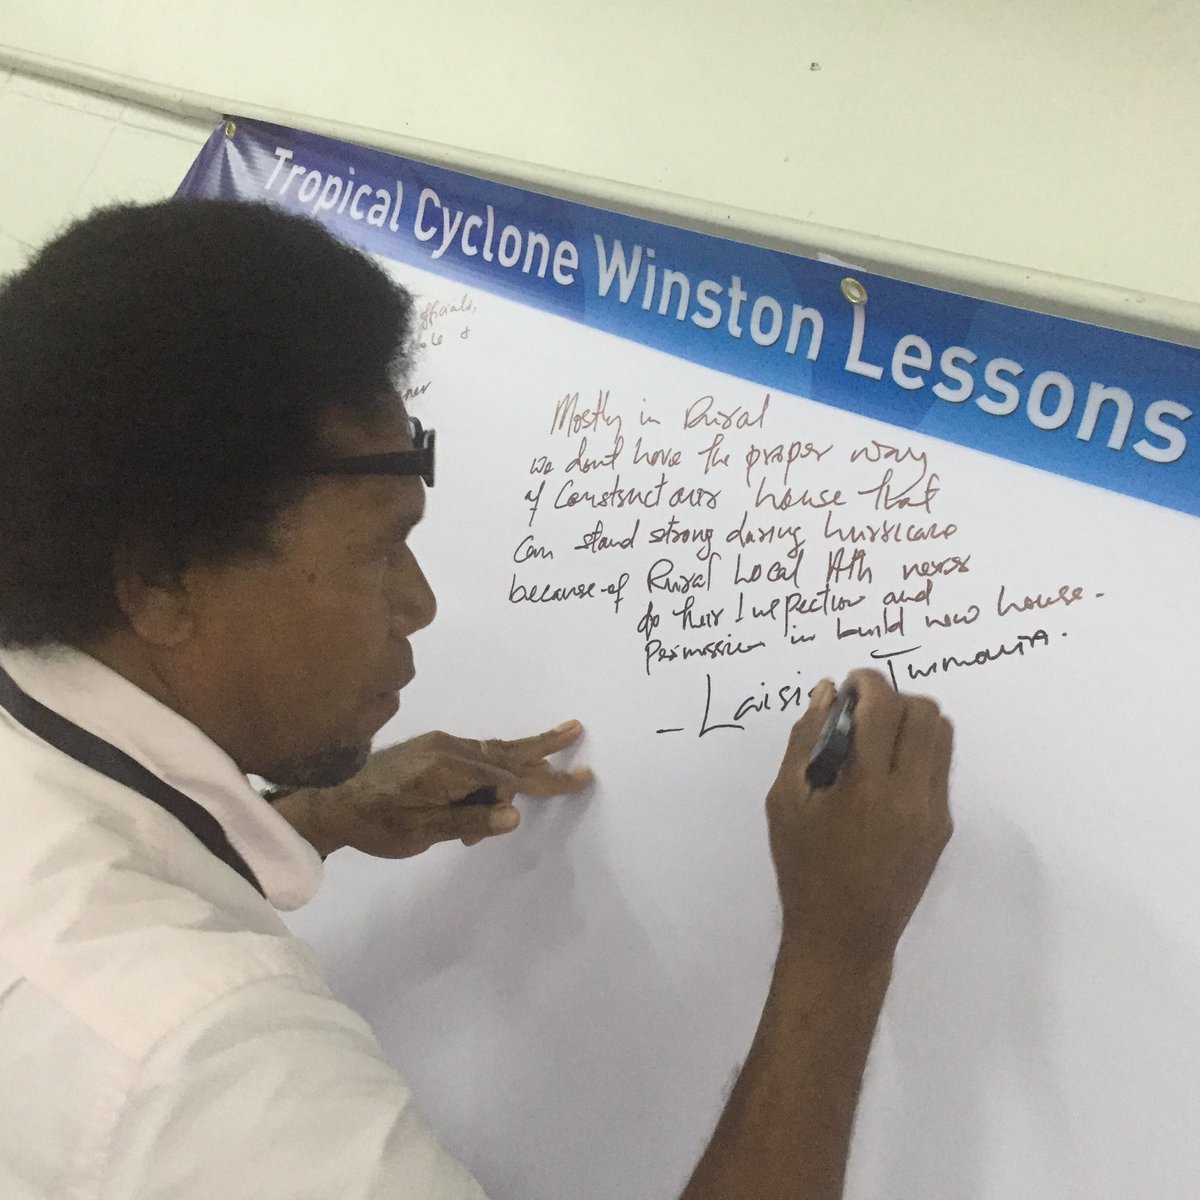 Tropical Cyclone Winston Lessons
officials,
Mostly in Rural
we don't have the proper way
of Construct our house that
can stand strong during hurricane
because of Rural Local Ath never
do their Inspection and
permission in build new house.